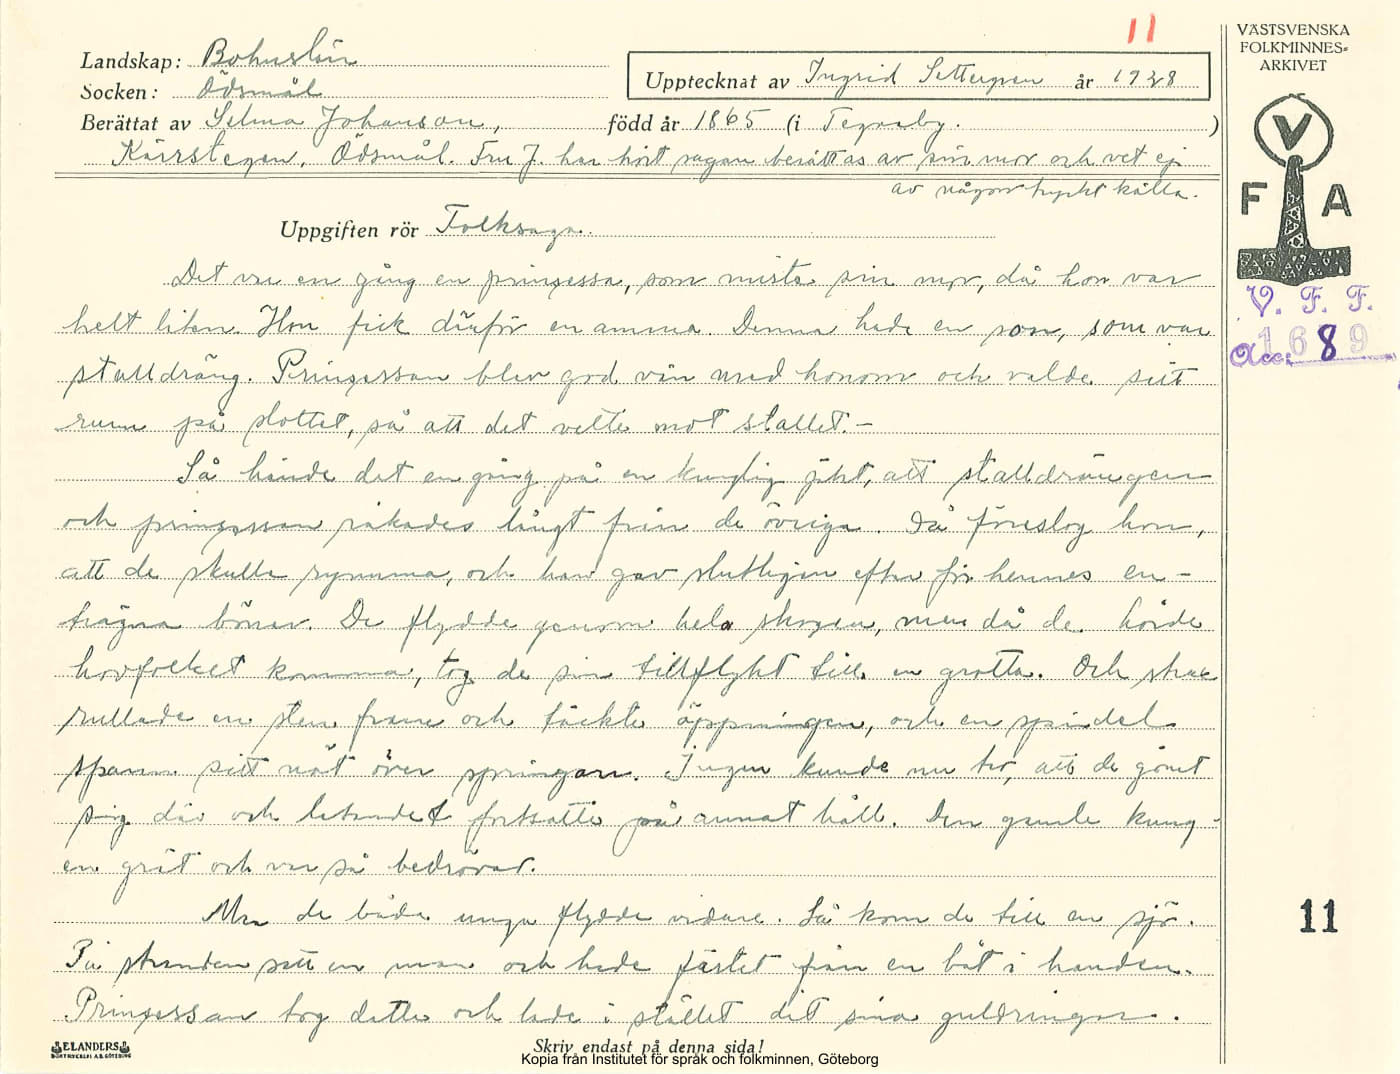 11
VÄSTSVENSKA
FOLKMINNES=
ARKIVET
Landskap: Bohuslän
Upptecknat av Ingrid Settergren år 1928
Socken: Ödsmål
Berättat av Selma Johanson, född år 1865 (i Tegneby. )
Kärrstegen, Ödsmål. Fru J. har hört sagan berättas av sin mor och vet ej
av någon tryckt källa.
Uppgiften rör Folksaga.
V
F A
V. F. F.
Acc: 1689
Det var en gång en prinsessa, som miste sin mor, då hon var
helt liten. Hon fick därför en amma. Denna hade en son, som var
stalldräng. Prinsessan blev god vän med honom och valde sitt
rum på slottet, så att det vette mot stallet.—
Så hände det en gång på en kunglig jakt, att stalldrängen
och prinsessan råkades långt från de övriga. Då föreslog hon,
att de skulle rymma, och han gav slutligen efter för hennes en-
trägna böner. De flydde genom hela skogen, men då de hörde
hovfolket komma, tog de sin tillflykt till en grotta. Och strax
rullade en sten fram och täckte öppningen, och en spindel
spann sitt nät över springan. Ingen kunde nu tro, att de gömt
sig där och letandet fortsatte på annat håll. Den gamle kung-
en grät och var så bedrövad.
Men de båda unga flydde vidare. Så kom de till en sjö.
På stranden satt en man och hade fästet från en båt i handen.
Prinsessan tog detta och lade i stället dit sina guldringar.
11
ELANDERS
BOKTRYCKERI A.B. GÖTEBORG
Skriv endast på denna sida!
Kopia från Institutet för språk och folkminnen, Göteborg